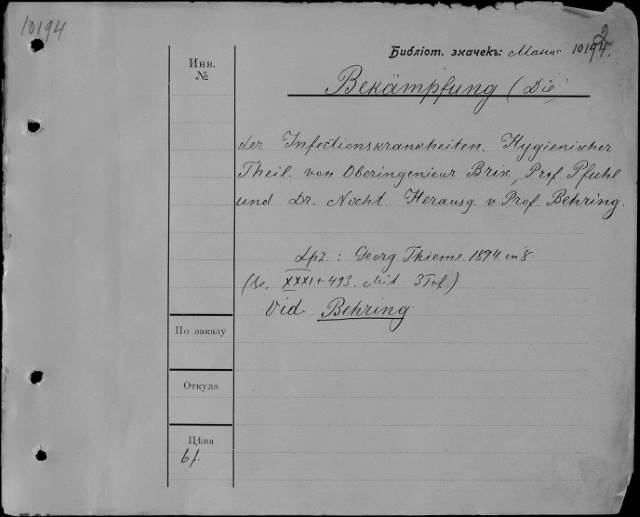 10194
Библіот. значекъ: 10194.
2
Инв.
№
Bekämpfung (Die)
der Infectionskrankheiten. Hygienischer
Theil. von Oberingenieur Brix, Prof. Pfuhl
und Dr. Nocht. Herausg. v Prof. Behring.
Lpz : Georg Thieme. 1894. in 8
XXXI + 493. Mit 3 Taf.)
Vid Behring
По заказу
Откуда
Цѣна